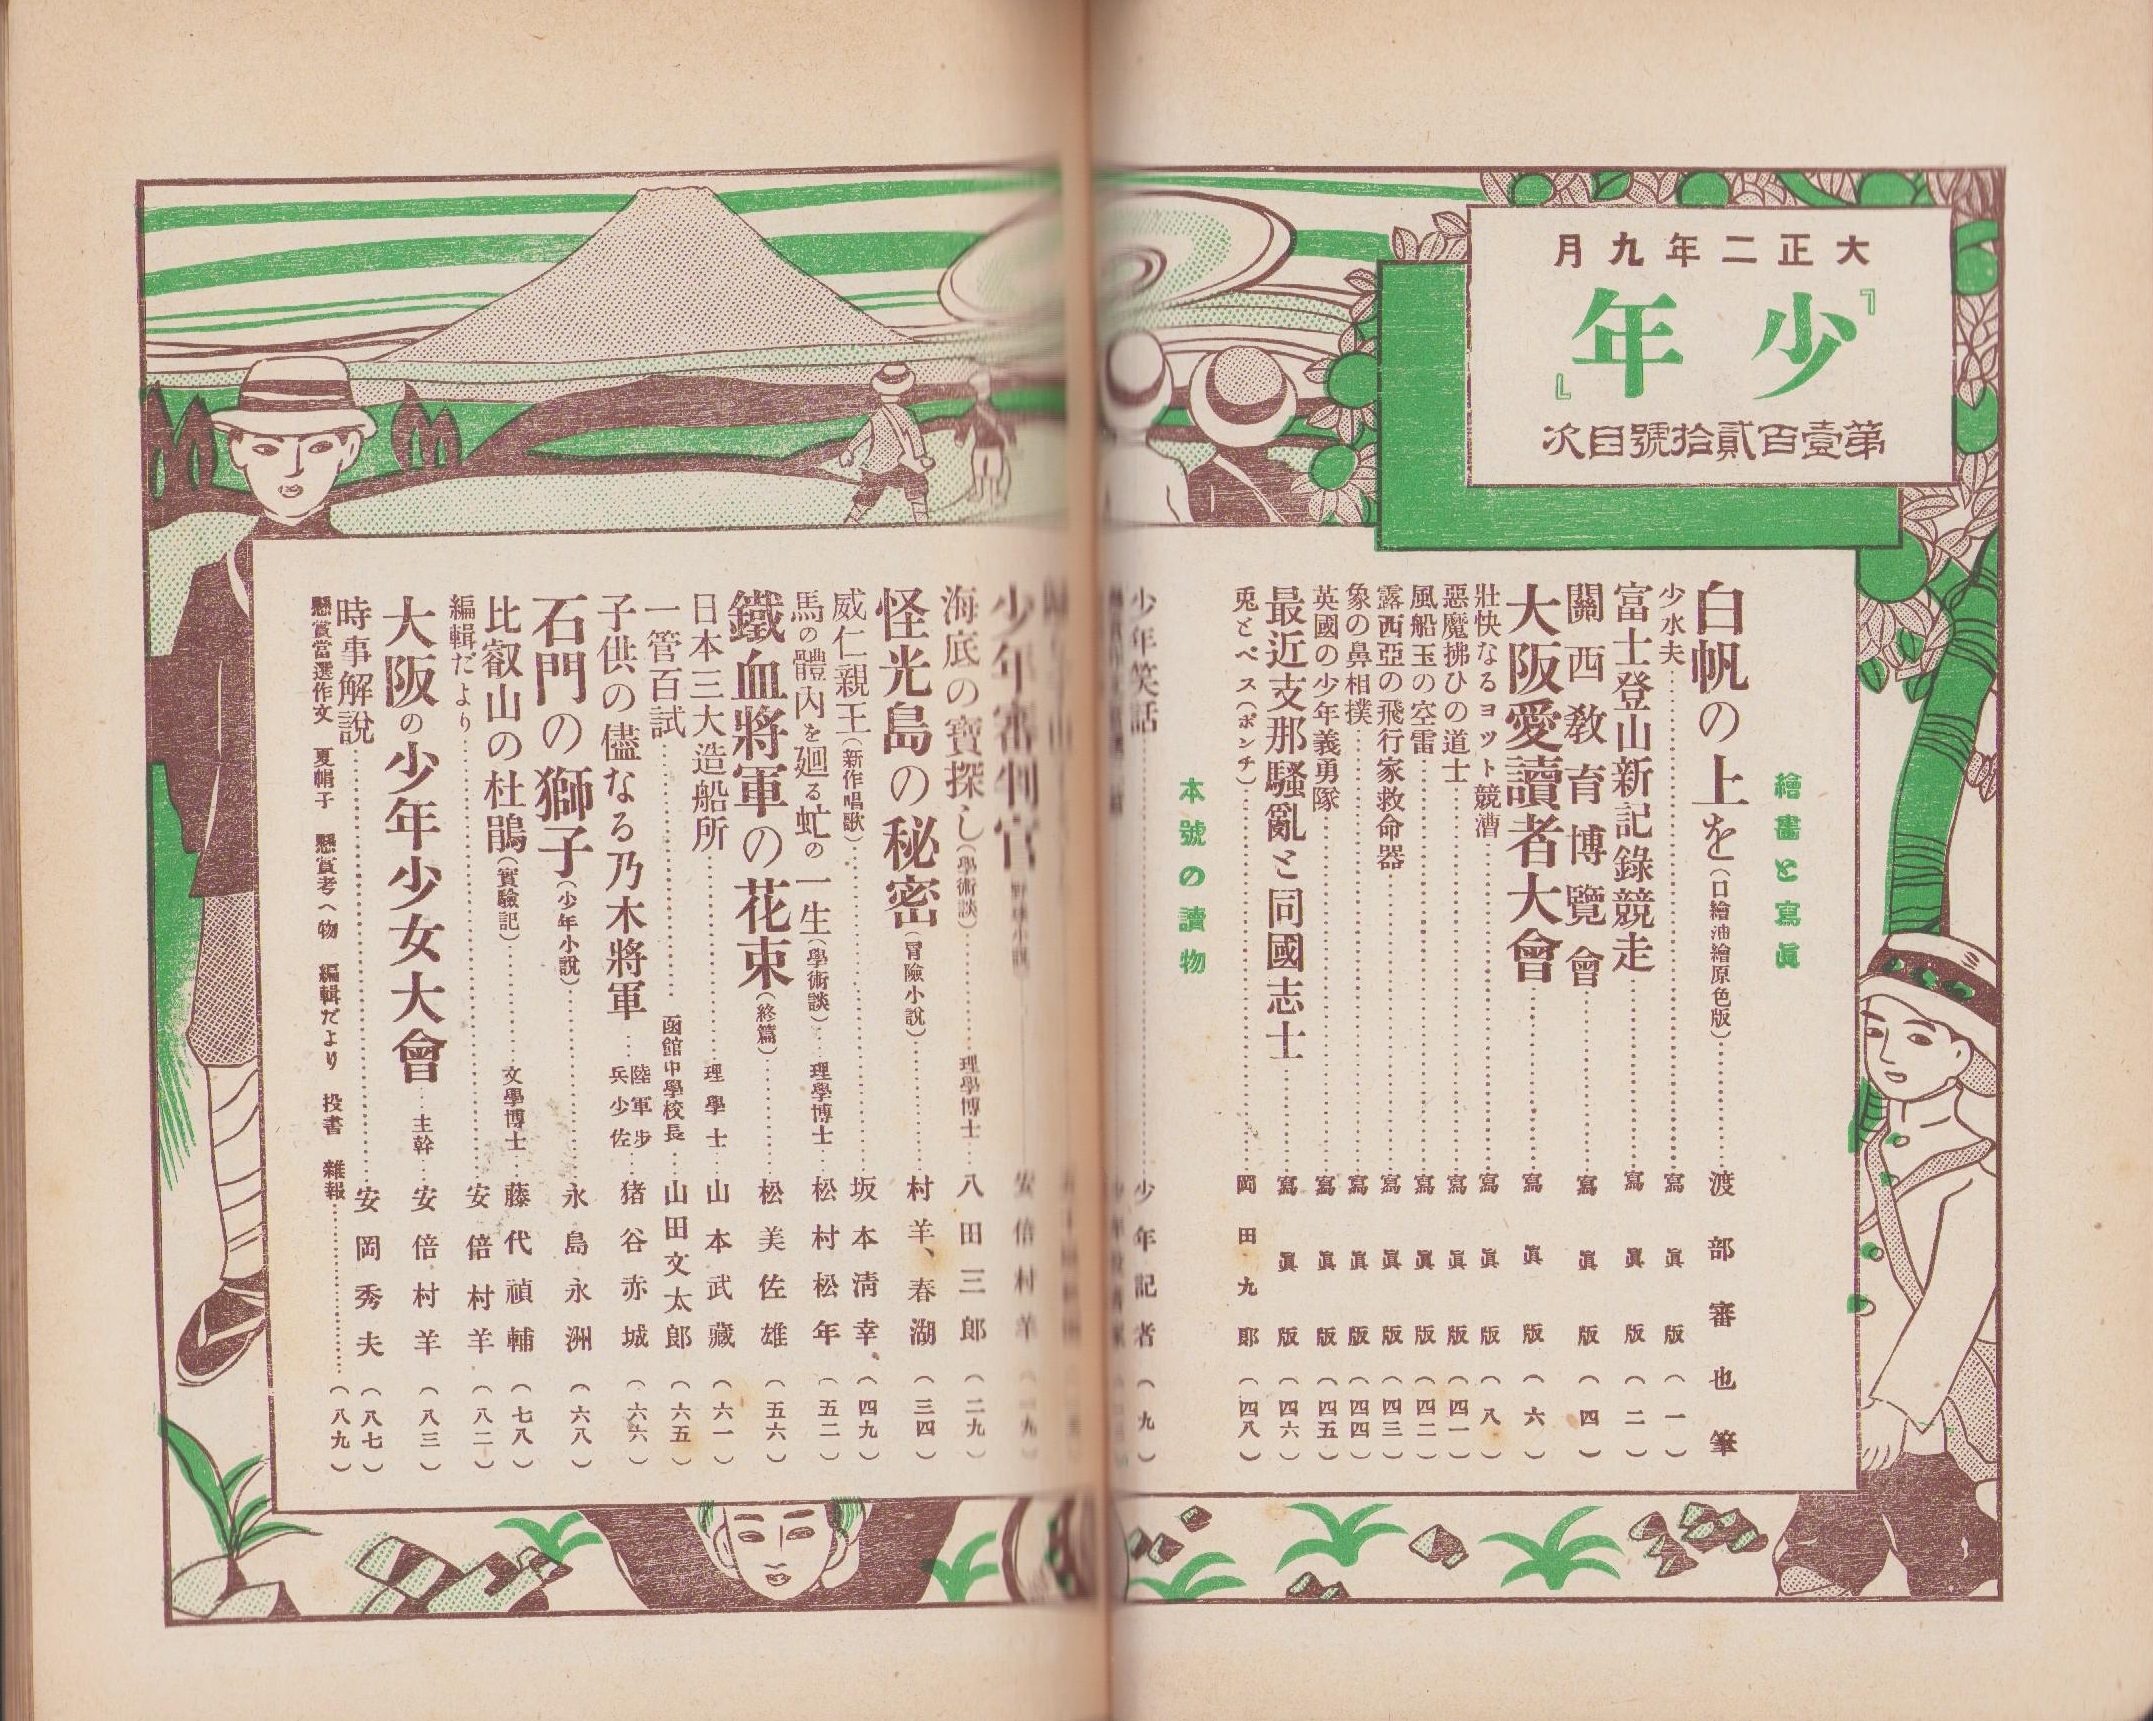 大正二年九月
『少年』
第壹百貳拾號目次
繪畵と寫眞
白帆の上を（口繪油繪原色版）…渡部審也筆
少水夫…寫眞版（一）
富士登山新記錄競走…寫眞版（二）
關西敎育博覽會…寫眞版（四）
大阪愛讀者大會…寫眞版（六）
壯快なるヨット競漕…寫眞版（八）
惡魔拂ひの道士…寫眞版（四一）
風船玉の空雷…寫眞版（四二）
露西亞の飛行家救命器…寫眞版（四三）
象の鼻相撲…寫眞版（四四）
英國の少年義勇隊…寫眞版（四五）
最近支那騷亂と同國志士…寫眞版（四六）
兎とペス（ポンチ）…岡田九郎（四八）
本號の讀物
少年笑話…少年記者（九）
少年審判官…安倍村羊（一九）
海底の寶探し（學術談）…理學博士…八田三郎（二九）
怪光島の秘密（冒險小說）…村羊、春湖（三四）
威仁親王（新作唱歌）…坂本淸幸（四九）
馬の體內を廻る虻の一生（學術談）…理學博士…松村松年（五二）
鐵血將軍の花束（終篇）…松美佐雄（五六）
日本三大造船所…理學士…山本武藏（六一）
一管百試…函館中學校長…山田文太郎（六五）
子供の儘なる乃木將軍…陸軍步兵少佐…猪谷赤城（六六）
石門の獅子（少年小說）…永島永洲（六八）
比叡山の杜鵑（實驗記）…文學博士…藤代禎輔（七八）
編輯だより…安倍村羊（八二）
大阪の少年少女大會…主幹…安倍村羊（八三）
時事解說…安岡秀夫（八七）
懸賞當選作文　夏帽子　懸賞考へ物　編輯だより　投書　雜報…（八九）